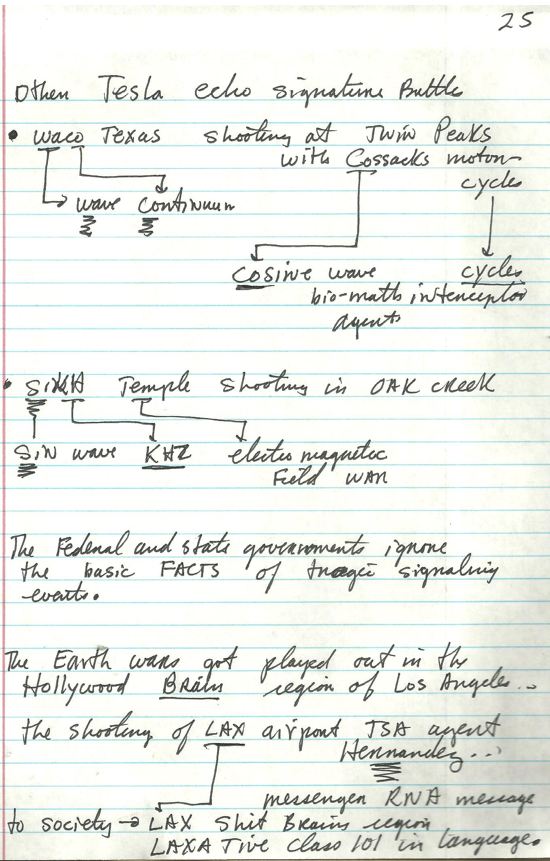 25
Other Tesla echo signature Battle
• Waco Texas shooting at Twin Peaks
with Cossacks motor
cycles
wave continuum
cosine wave cycles
bio-math interceptor
agents
• SiKH Temple shooting in OAK creek
SiN wave KHZ electromagnetic
Field WAR
The Federal and state governments ignore
the basic FACTS of tragic signaling
events.
The Earth wars got played out in the
Hollywood Brain region of Los Angeles...
the shooting of LAX airport TSA agent
Hernandez...
messenger RNA message
to society → LAX Shit Brains region
LAXATive class 101 in languages